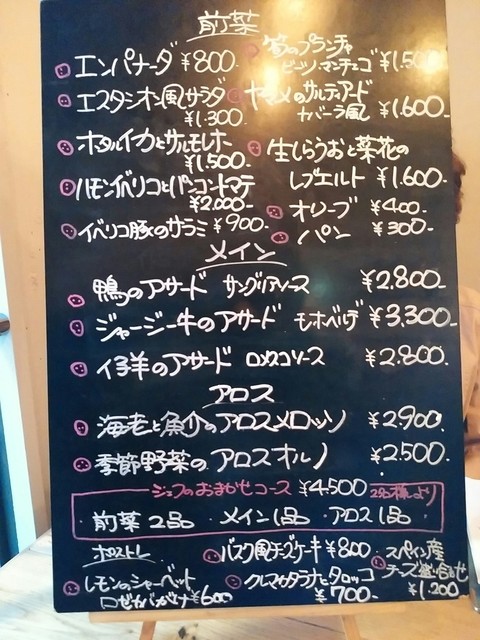 前菜
エンパナーダ ¥800-
エスタシオン風サラダ
¥1.300-
ホタルイカとサルモレホ
¥1.500-
ハモンイベリコとパンコントマテ
¥2.000-
イベリコ豚のサラミ ¥900-
筍のプランチャ
ピーソ、マンチェゴ ¥1.500-
ヤマメのサルティアード
ナバーラ風 ¥1.600-
生しらうおと菜花の
レブエルト ¥1.600-
オリーブ ¥400-
パン ¥300-
メイン
鴨のアサード サングリアソース ¥2.800-
ジャージー牛のアサード モホベルデ ¥3,300-
仔羊のアサード ロメスコソース ¥2.800-
アロス
海老と魚介のアロスメロッソ ¥2.900-
季節野菜のアロスオルノ ¥2.500-
シェフのおまかせコース ¥4,500 2名様より
前菜2品 ・ メイン1品 ・ アロス1品
ポストレ
レモンのシャーベット
ロゼカバがけ ¥600-
バスク風チーズケーキ ¥800-
クレマカタラナとタロッコ
¥700-
スペイン産
チーズ盛り合わせ
¥1.200-